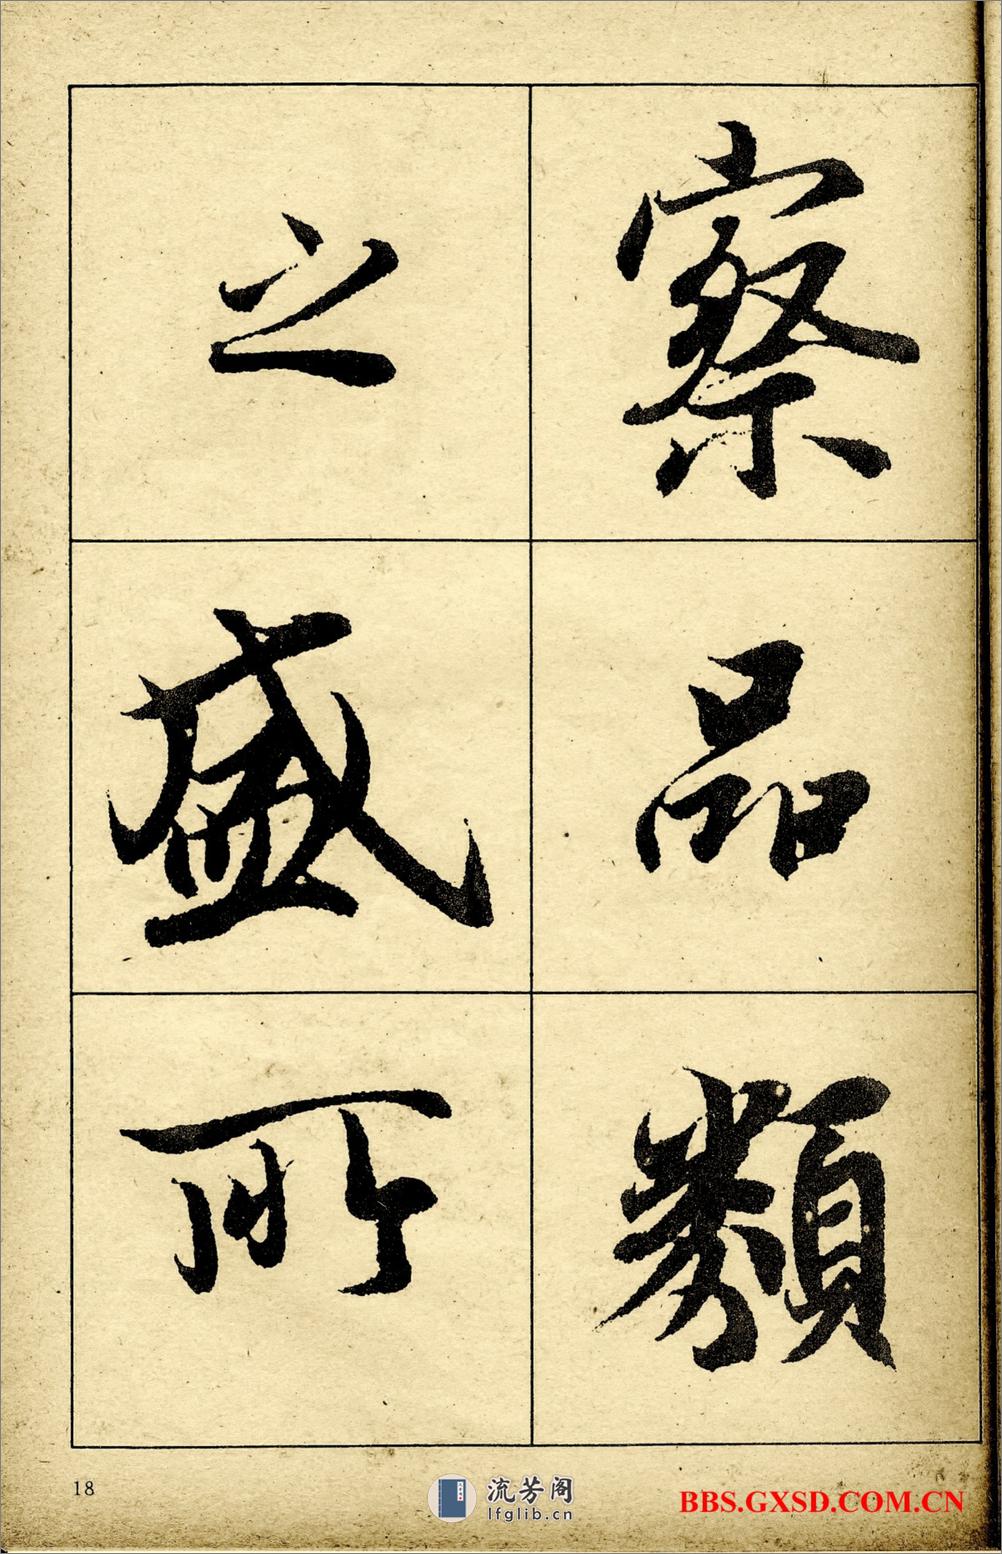 察品類
之盛所
18
流芳阁
lfglib.cn
BBS.GXSD.COM.CN